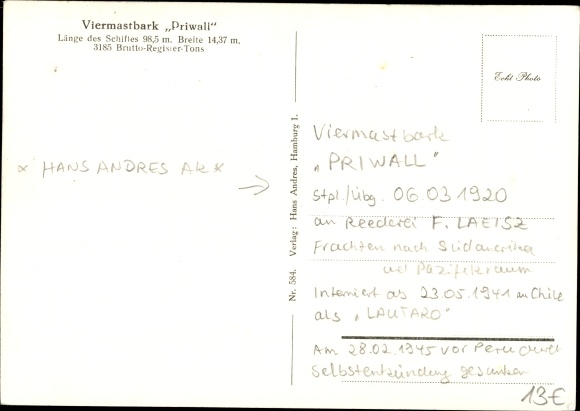 Viermastbark „Priwall“
Länge des Schiffes 98,5 m, Breite 14,37 m,
3185 Brutto-Register-Tons
Echt Photo
Nr. 584. Verlag: Hans Andres, Hamburg 1.
× HANS ANDRES AK × →
Viermastbark
„PRIWALL“
Stpl./Übg. 06.03 1920
an Reederei F. LAEISZ
Frachten nach Südamerika
und Pazifikraum
Interniert ab 23.05.1941 an Chile
als „LAUTARO“
Am 28.02.1945 vor Peru durch
Selbstentzündung gesunken
13€